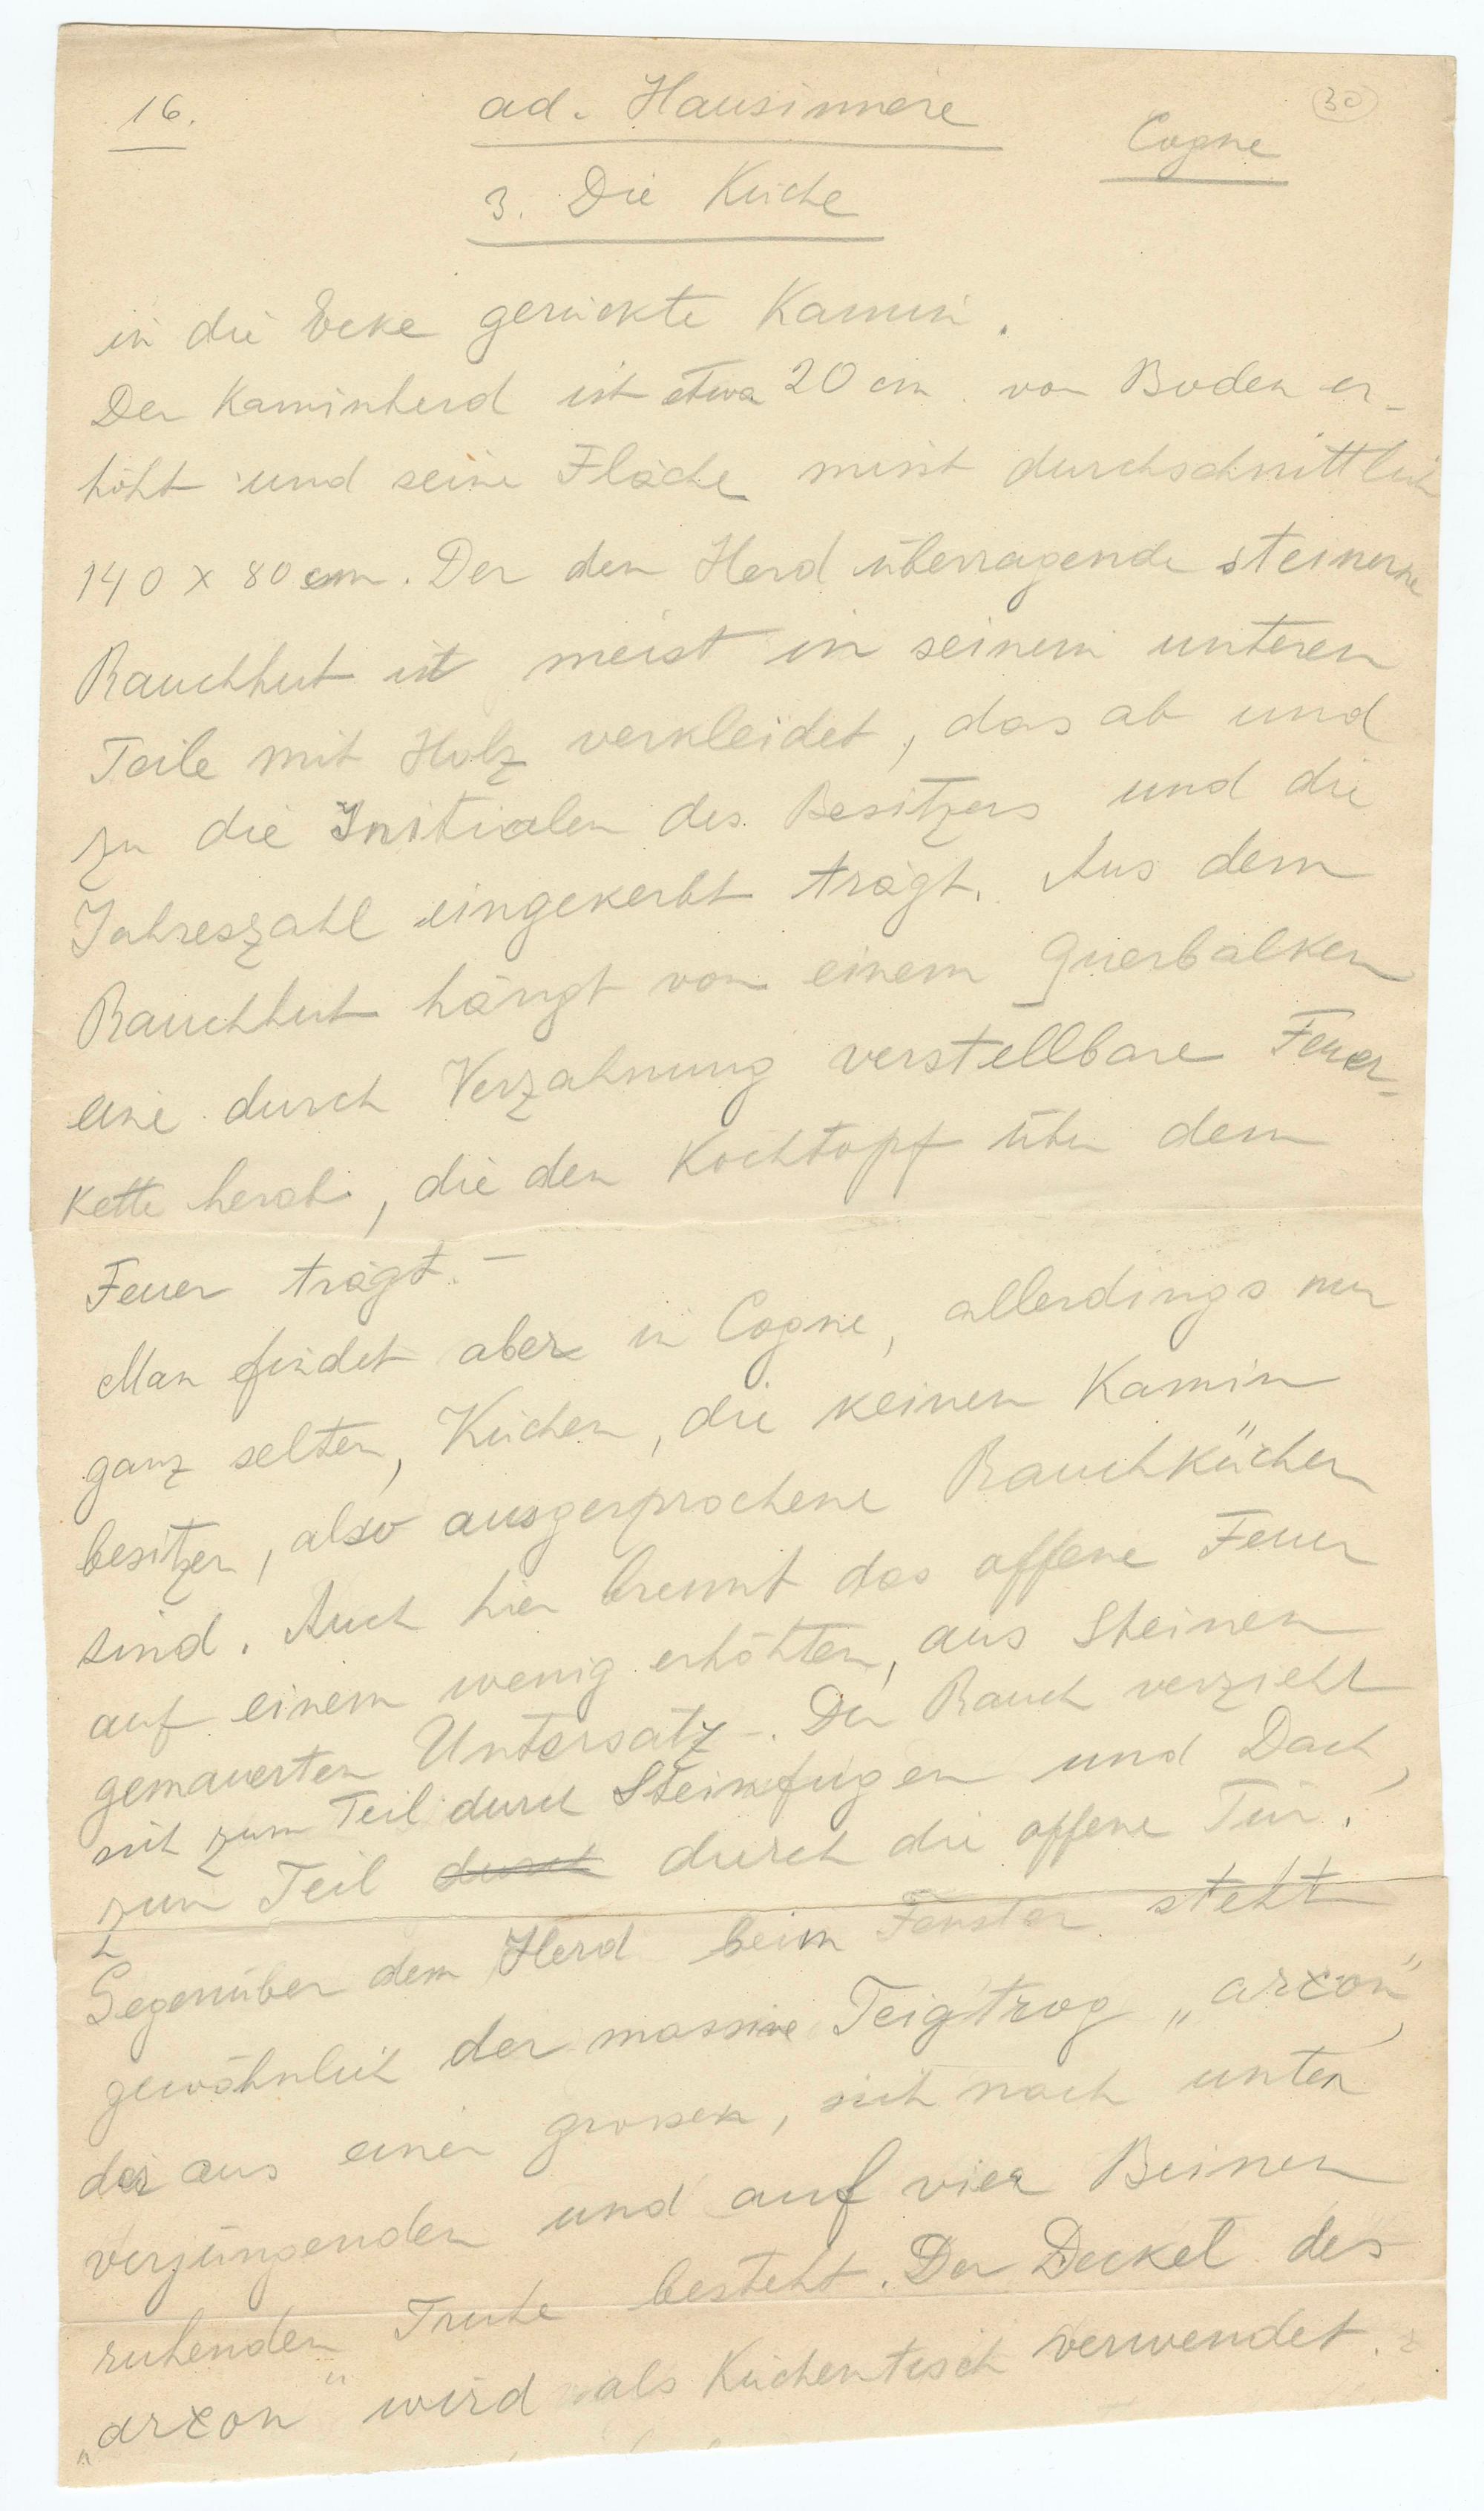 16.
ad. Hausinnere
30
Cogne
3. Die Küche
in die Ecke gerückte Kamin.
Der Kaminherd ist etwa 20 cm von Boden er-
höht und seine Fläche misst durchschnittlich
140 x 80 cm. Der den Herd überragende steinerne
Rauchhut ist meist in seinem unteren
Teile mit Holz verkleidet, das ab und
zu die Initialen des Besitzers und die
Jahreszahl eingekerbt trägt. Aus dem
Rauchhut hängt von einem Querbalken
eine durch Verzahnung verstellbare Feuer-
kette herab, die den Kochtopf über dem
Feuer trägt. –
Man findet aber in Cogne, allerdings nur
ganz selten, Küchen, die keinen Kamin
besitzen, also ausgesprochene Rauchküchen
sind. Auch hier brennt das offene Feuer
auf einem wenig erhöhten, aus Steinen
gemauerten Untersatz. Der Rauch verzieht
sich zum Teil durch Steinfugen und Dach,
zum Teil durch durch die offene Tür.
Gegenüber dem Herd beim Fenster steht
gewöhnlich der massive Teigtrog „arcon“,
der aus einer grossen, sich nach unten
verjüngenden und auf vier Beinen
ruhenden Truhe besteht. Der Deckel des
„arcon“ wird als Küchentisch verwendet.